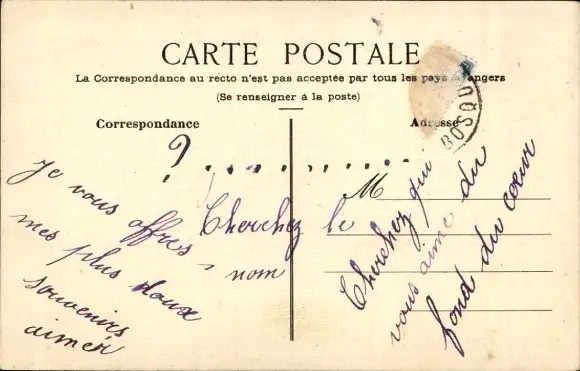 CARTE POSTALE
La Correspondance au recto n'est pas acceptée par tous les pays étrangers
(Se renseigner à la poste)
Correspondance
Adresse
?
M
Je vous offres
mes plus doux
souvenirs
aimer
Cherchez le
nom
Cherchez qui
vous aime du
fond du cœur
BOSQU